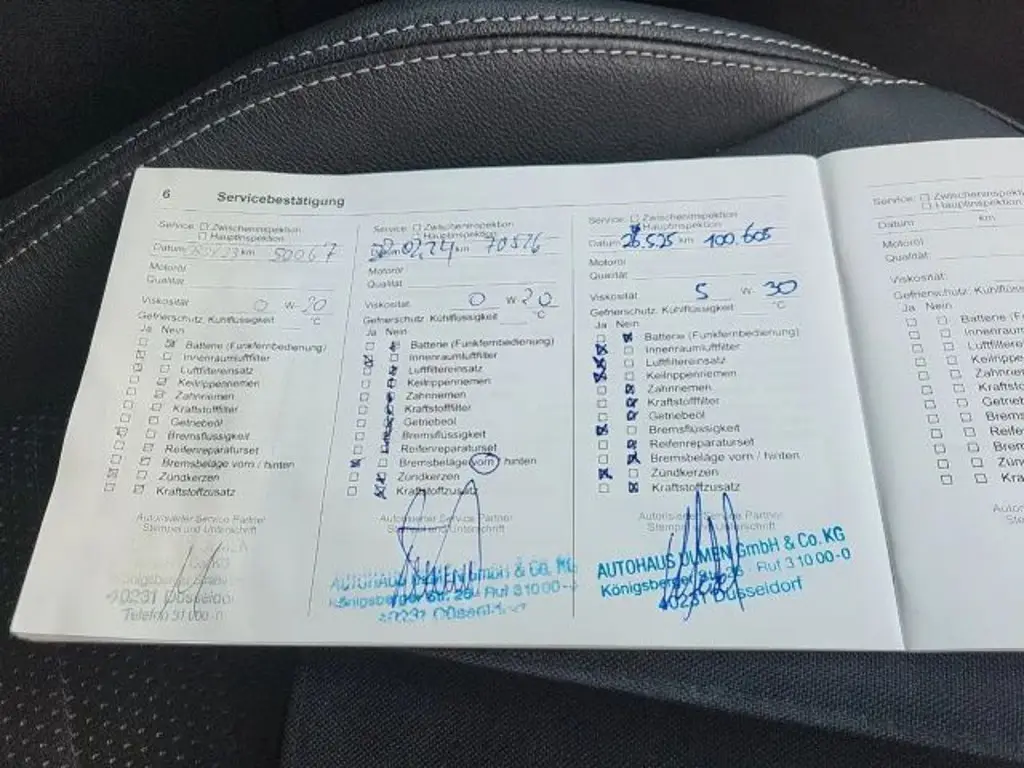 6 Servicebestätigung
Service: Zwischeninspektion
Hauptinspektion
Datum km 50067
Motoröl
Qualität
Viskosität 0 W- 20
Gefrierschutz: Kühlflüssigkeit °C
Ja Nein
Batterie (Funkfernbedienung)
Innenraumluftfilter
Luftfiltereinsatz
Keilrippenriemen
Zahnriemen
Kraftstofffilter
Getriebeöl
Bremsflüssigkeit
Reifenreparaturset
Bremsbeläge vorn / hinten
Zündkerzen
Kraftstoffzusatz
Autorisierter Service Partner
Stempel und Unterschrift
Co. KG
40231 Düsseldorf
Telefon 31 000-0
Service: Zwischeninspektion
Hauptinspektion
km 70526
Motoröl
Qualität
Viskosität 0 W- 20
Gefrierschutz: Kühlflüssigkeit °C
Ja Nein
Batterie (Funkfernbedienung)
Innenraumluftfilter
Luftfiltereinsatz
Keilrippenriemen
Zahnriemen
Kraftstofffilter
Getriebeöl
Bremsflüssigkeit
Reifenreparaturset
Bremsbeläge vorn / hinten
Zündkerzen
Kraftstoffzusatz
Autorisierter Service Partner
Stempel und Unterschrift
AUTOHAUS ULMEN GmbH & Co. KG
Königsberger Str. 26 - Ruf 3 10 00 -
40231 Düsseldorf
Service: Zwischeninspektion
Hauptinspektion
Datum 26.5.25 km 100.605
Motoröl
Qualität
Viskosität 5 W- 30
Gefrierschutz: Kühlflüssigkeit °C
Ja Nein
Batterie (Funkfernbedienung)
Innenraumluftfilter
Luftfiltereinsatz
Keilrippenriemen
Zahnriemen
Kraftstofffilter
Getriebeöl
Bremsflüssigkeit
Reifenreparaturset
Bremsbeläge vorn / hinten
Zündkerzen
Kraftstoffzusatz
Autorisierter Service Partner
Stempel und Unterschrift
AUTOHAUS ULMEN GmbH & Co. KG
Königsberger Str. 26 - Ruf 3 10 00 - 0
40231 Düsseldorf
Service: Zwischeninspektion
Hauptinspektion
Datum km
Motoröl
Qualität:
Viskosität:
Gefrierschutz: Kühlflüss
Ja Nein
Batterie (F
Innenraum
Luftfilterein
Keilrippen
Zahnriem
Kraftsto
Getrieb
Brems
Reifen
Brem
Zün
Kra
Auto
S